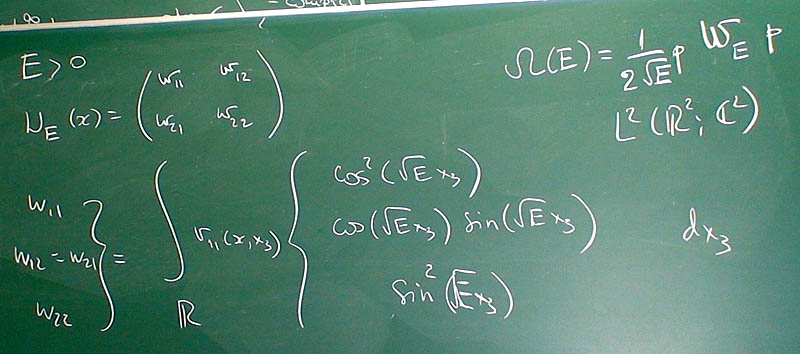 E > 0
W_E (x) = ( w_11 w_12
w_21 w_22 )
Ω(E) = 1/(2√E) p W_E p
L² (ℝ²; ℂ²)
w_11
w_12 = w_21
w_22 } = ∫_ℝ v_11 (x, x_3) { cos² (√E x_3)
cos(√E x_3) sin(√E x_3)
sin² (√E x_3) } dx_3